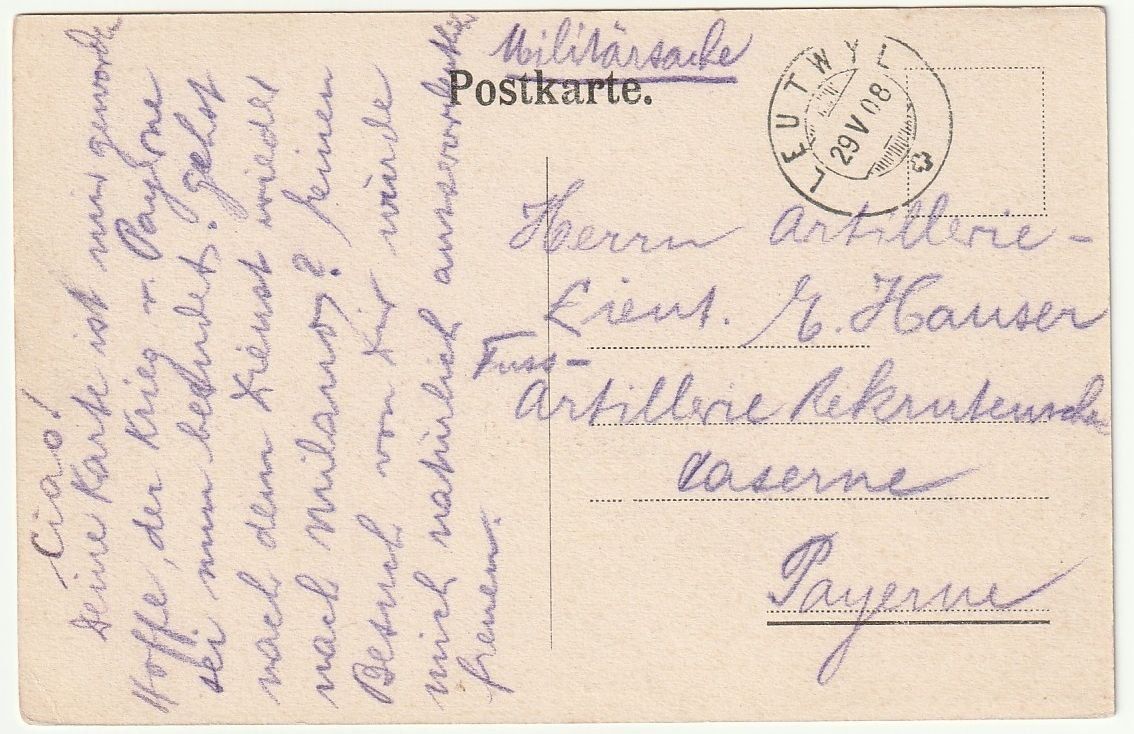 Militärsache
Postkarte.
LEUTWYL
29 V 08
Herrn Artillerie-
Lieut. E. Hauser
Fuss-
Artillerie Rekrutensch
Caserne
Payerne
Ciao!
Deine Karte ist mir geworden
Hoffe, der Krieg v. Payerne
sei nun beendet. gehst
nach dem Dienst wieder
nach Milano? Einen
Besuch von Dir würde
mich natürlich ausserordentlich
freuen.